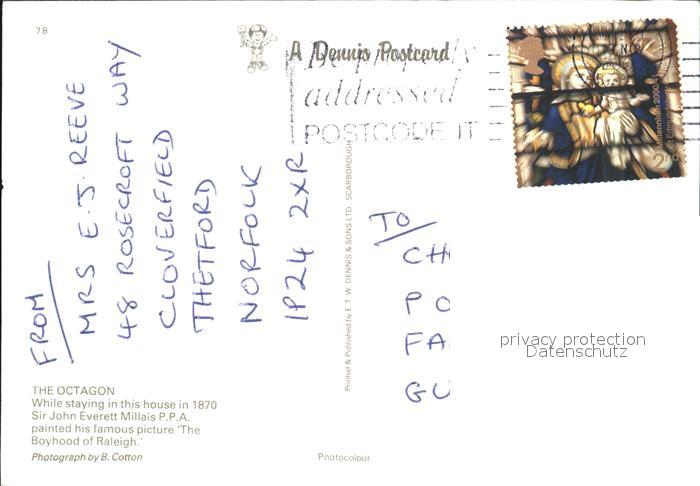 78
A Dennis Postcard
addressed
POSTCODE IT
NOV
Millennium 2000
FROM
MRS E.J. REEVE
48 ROSECROFT WAY
CLOVERFIELD
THETFORD
NORFOLK
IP24 2XR
Printed & Published by E.T.W. DENNIS & SONS LTD SCARBOROUGH
TO
CH
PO
FA
GU
privacy protection
Datenschutz
THE OCTAGON
While staying in this house in 1870
Sir John Everett Millais P.P.A.
painted his famous picture 'The
Boyhood of Raleigh.'
Photograph by B. Cotton
Photocolour